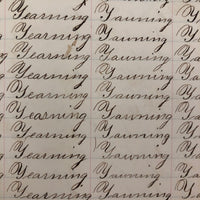 Yearning Yawning
Yearning Yawning
Yearning Yawning
Yearning Yawning
Yearning Yawning
Yearning Yawning
Yearning Yawning
Yearning Yawning
Yearning Yawning
Yearning Yawning